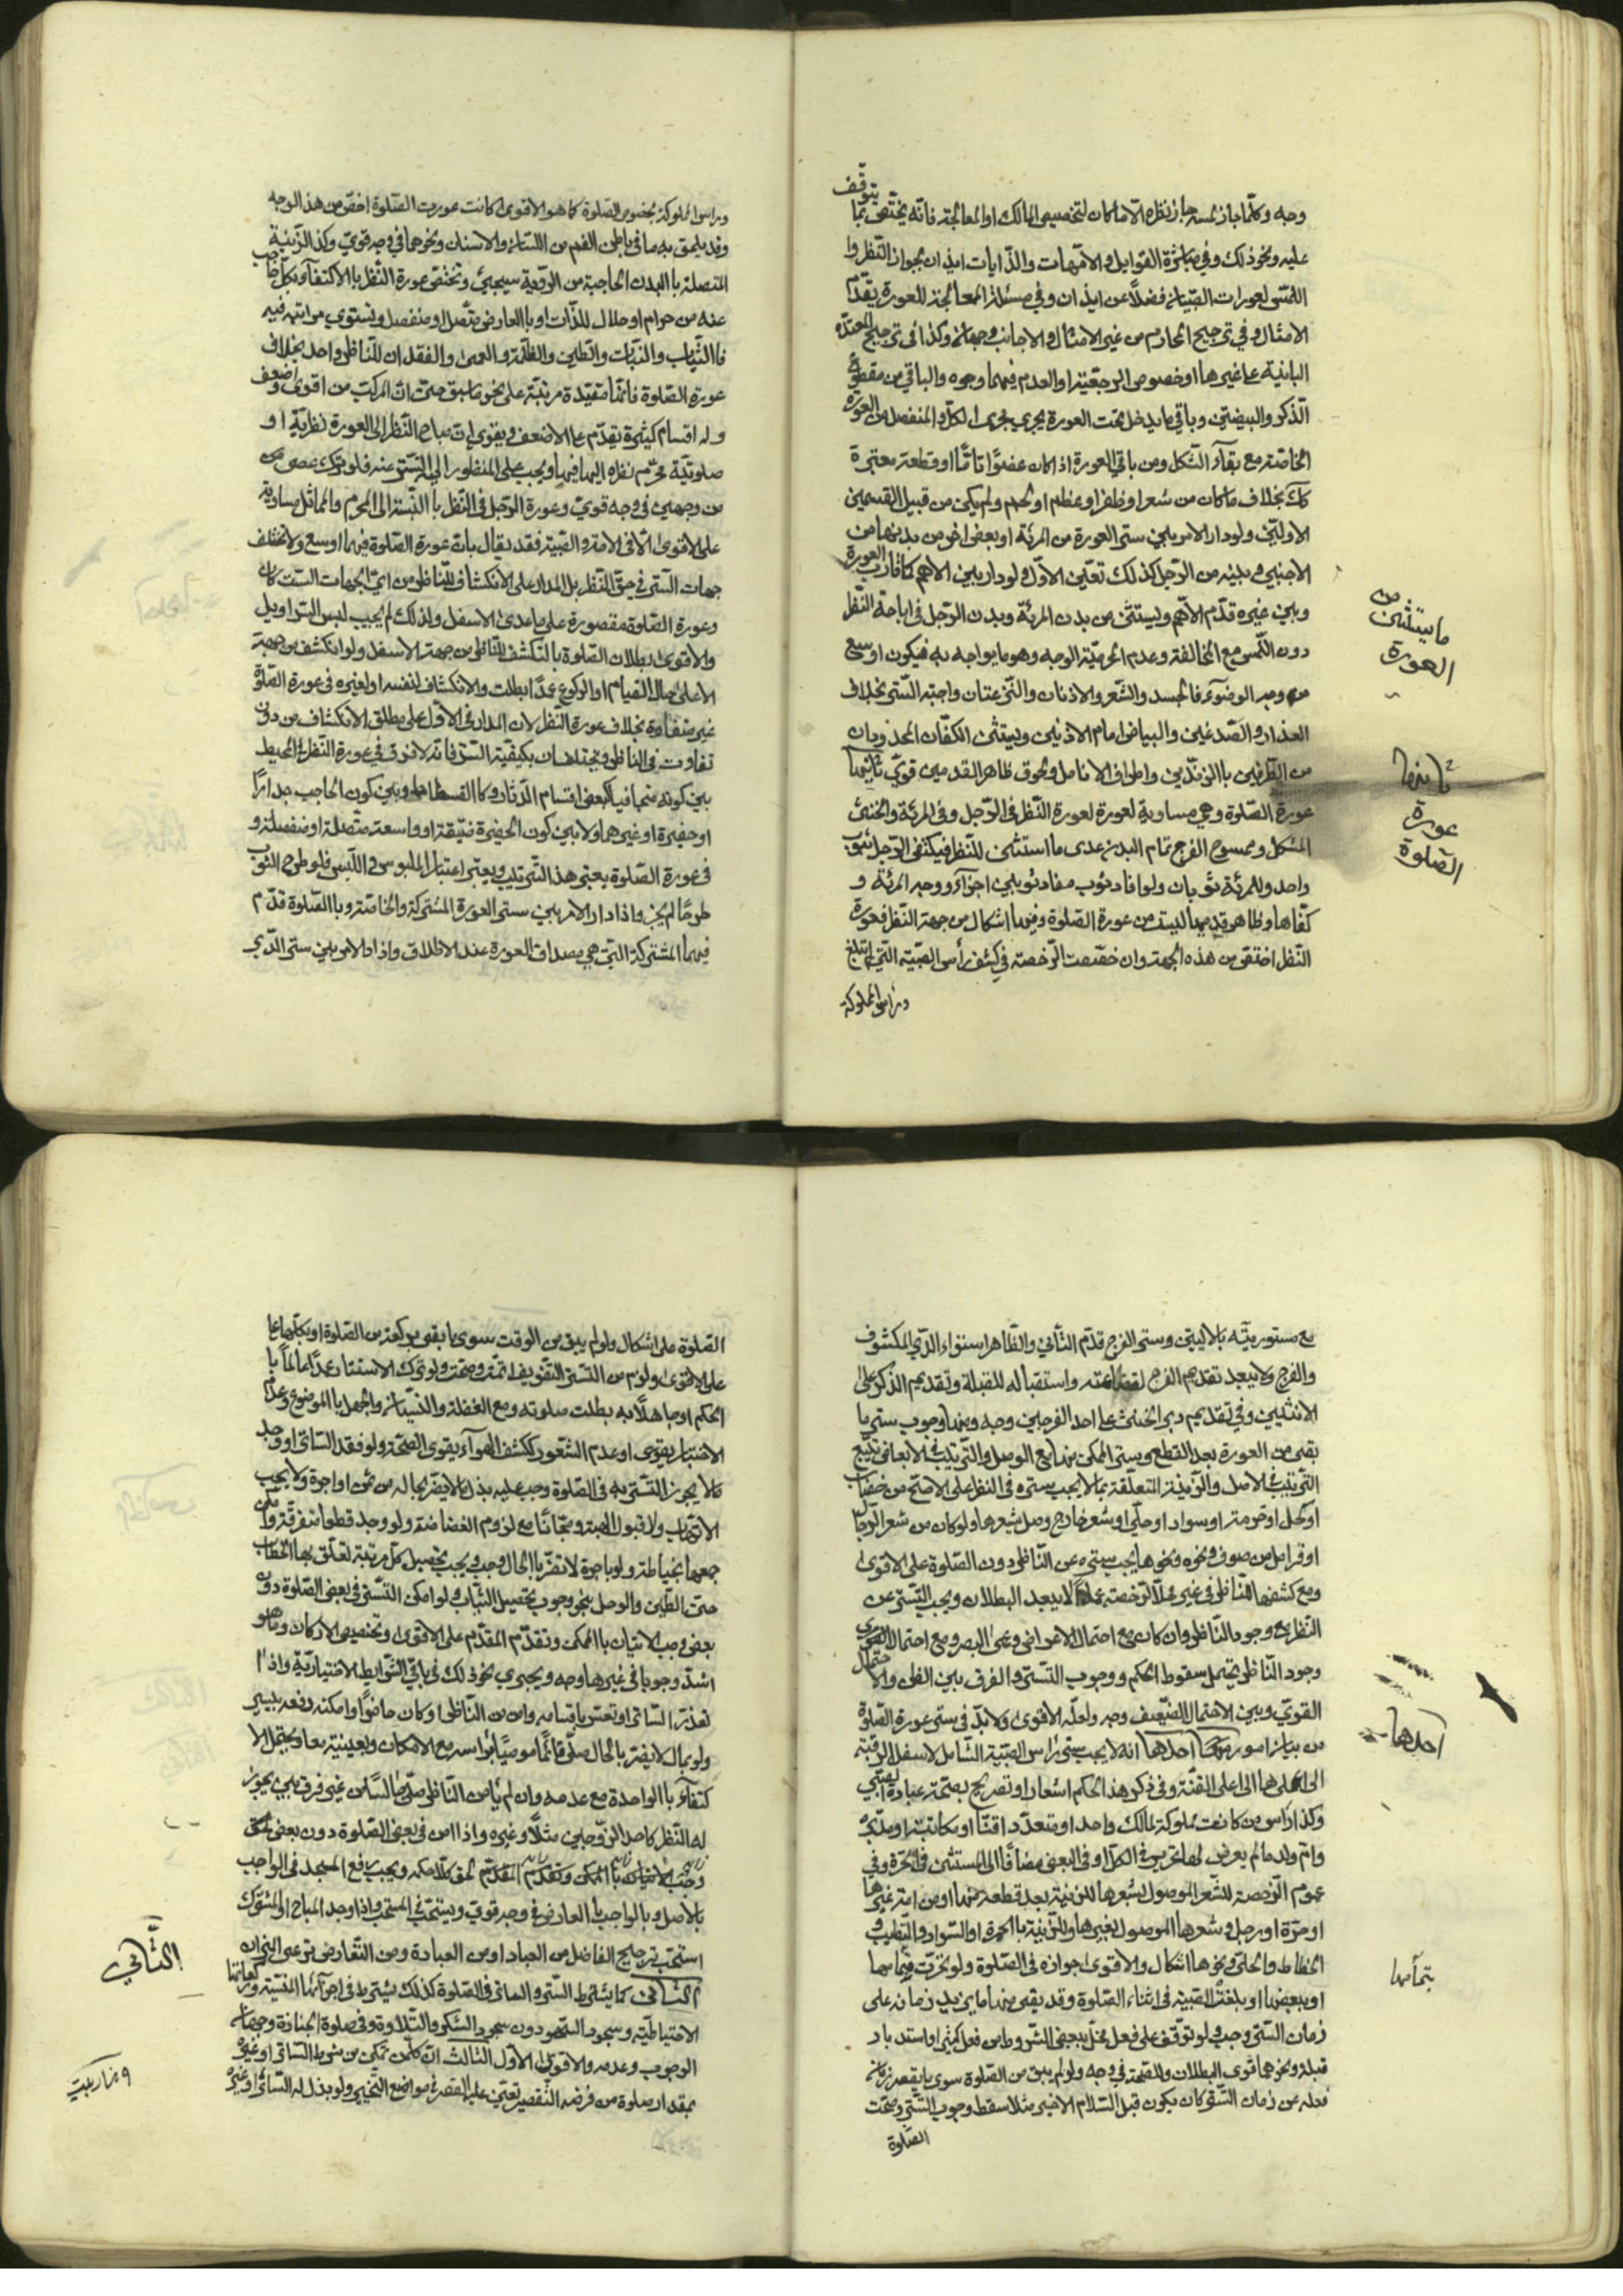 يتوقّف
وجه وكلّما جاز لمسه جاز نظره الّا ما كان لتخصيص المالك او المعالجة فانّه يختصّ بما
عليه ونحو ذلك وفي مباشرة القوابل والامّهات والدّايات ايذان بجواز النّظر وا
اللّمس لعورات الصّبيان فضلاً عن ايذان وفي مسئلة المعالجة للعورة يقدّم
الامثال وفي ترجيح المحارم من غير الامثال والاجانب وجهان وكذا في ترجيح المعتدّه
البائنية على غيرها او خصوص الرجعيّة او العدم فيهما وجوه والباقي من مقطوع
الذّكر والبيضتين وباقي ما يدخل تحت العورة يجري مجرى الكلّ والمنفصل من العورة
الخاصّة مع بقاء الشّكل ومن باقي العورة اذا كان عضوًا تامًّا او قطعة معتبرة
كك بخلاف ما كان من شعر او ظفر او عظم او لحم ولم يكن من قبيل القسمين
الاوليّن ولو دار الامر بين ستر العورة من المرئة او بعض اخر من بدنها من
الاجنبي وبينه من الرّجل كذلك تعيّن الاوّل ولو دار بين الاهم كما قارب العورة
وبين غيره قدّم الاهم ويستثنى من بدن المرئة وبدن الرّجل في اباحة النّظر
دون اللّمس مع المخالفة وعدم المحرميّة الوجه وهو ما يواجه به فيكون اوسع
من وجه الوضوء فالجسد والشّعر والاذنان والنّزعتان واجبة السّتر بخلاف
العذار والصّدغين والبياض امام الاذنين ويستثنى الكفّان المحدودان
من الطّرفين باالزندين واطراف الانامل ولحوق ظاهر القدمين قويّ ثانيها
عورة الصّلوة وهي مساوية لعورة لعورة النّظر في الرّجل وفي المرئة والخنثى
المشكل وممسوح الفرج تمام البدن عدى ما استثنى للنّظر فيكتفي الرّجل بثوب
واحد وللمرئة ثوبان ولو افاد ثوب مفاد ثوبين اجزآء ووجه المرئة و
كفّاها وظاهر قدميها ليست من عورة الصّلوة وفيها اشكال من جهة النّظر فعورة
النّظر اختصّ من هذه الجهة وان خصّصت الرّخصة في كشف رأس الصّبيّة التي لم تبلغ
وراس المملوكة
ما يستثنى من
العورة
ثانيها
عورة
الصّلوة
وراس المملوكة بخصوص الصّلوة كما هو الاقوى كانت عورت الصّلوة اخصّ من هذا الوجه
وقد يلحق به ما في باطن الفم من اللّسان والاسنان ونحوها في وجه قويّ وكذا الزّينة
المتصلة باالبدن الحاجبة من الرّؤية سيجيئ وتختصّ عورة النّظر باالاكتفآء بكلّ حاجب
عنه من حرام او حلال للذّات او باالعارض متّصل او منفصل وتستوي مراتبه فيه
فاالثّياب والنّبات والطّين والظّلمة والعمى والفقدان للنّاظر واحد بخلاف
عورة الصّلوة فانّها متقيّدة مرتبّة على نحو ما سبق حتّى انّ المركّب من اقوى واضعف
وله اقسام كثيرة يقدّم على الاضعف ويقوى انّ مباح النّظر الى العورة نظريّة او
صلوتيّة محرّم نظره اليها فيها ويجب على المنظور اليه التستّر عنه فلو ترك عصى من
من وجهين في وجه قويّ وعورة الرّجل في النّظر باالنّسبة الى المحرم والمماثل مساوية
على الاقوى الّا في الامة والصّبيّة فقد يقال بانّ عورة الصّلوة فيهما اوسع ولا تختلف
جهات السّتر في حقّ النّظر بل المدار على الانكشاف للنّاظر من ايّ الجهات السّت كان
وعورة الصّلوة مقصورة على ما عدى الاسفل ولذلك لم يجب لبس السّراويل
والاقوى بطلان الصّلوة بالتّكشّف للنّاظر من جهة الاسفل ولو انكشف من جهة
الاعلى حال القيام او الرّكوع عمدًا بطلت والانكشاف لنفسه او لغيره في عورة الصّلوة
غير متفاوة بخلاف عورة النّظر لان المدار في الاوّل على مطلق الانكشاف من دون
تفاوت في النّاظر ويختلفان بكيفيّة السّتر فانّه لا فرق في عورة النّظر في المحيط
بين كونه متجافيا كبعض اقسام الدّثار وكا الفسطاط وبين كون الحاجب جدارًا
او حفيرة او غيرهما ولا بين كون الحفيرة ضيّقة او واسعة متّصلة او منفصلة و
في عورة الصّلوة يعتبر هذا التّرتيب ويعتبر اعتبار الملبوس في اللّبس فلو طرح الثّوب
طرحًا لم يجز واذا دار الامر بين ستر العورة المشتركة والخاصّة وباالصّلوة قدّم
فيهما المشتركة الّتي هي مصداق العورة عند الاطلاق واذا دار الامر بين ستر الدّبر
مع مستوريّته بالاليتين وستر الفرج قدّم الثّاني والظّاهر استواء الدّبر المكشوف
والفرج ولا يبعد تقديم الفرج لفضاعته واستقباله للقبلة وتقديم الذّكر على
الانثيين وفي تقديم دبر الخنثى على احد الفرجين وجه وبناء وجوب ستر ما
بقي من العورة بعد القطع وستر الممكن منها مع الوصل والتّرتيب في الابعاض تتبع
التّرتيب في الاصل والزّينة المتعلّقة بما لا يجب ستره في النّظر على الاصحّ من خضاب
او كحل او حمرة او سواد او حلّي او شعر خارج وصل بشعرها ولو كان من شعر الرّجال
او قرامل من صوف ونحوه ونحوها يجب ستره عن النّاظر دون الصّلوة على الاقوى
ومع كشفها للنّاظر في غير محلّ الرّخصة عمدًا لا يبعد البطلان ويجب التّستّر عن
النّظر مع وجود النّاظر وان كان مع احتمال الاعراض وغضّ البصر ومع احتمال القوي
وجود النّاظر يحتمل سقوط الحكم ووجوب التّستّر والفرق بين الظنّ والاحتمال
القويّ وبين الاحتمال الضّعيف وجه ولعلّه الاقوى ولابدّ في ستر عورة الصّلوة
من بيان امور احدها انه لا يجب ستر رأس الصّبيّة الشّامل لاسفل الرّقبة
الى اعلاها الى اعلى القنّة وفي ذكر هذا الحكم اشعار او تصريح بصحّة عبادة الصّبي
وكذا رأس من كانت مملوكة لمالك واحد او متعدّد اقنّا او مكاتبة او مدبّرة
وامّ ولد ما لم يعرض لها تحرير في الكلّ او في البعض مضافًا الى المستثنى في الحرّة وفي
عموم الرّخصة للشّعر الموصول بشعرها للزّينة بعد قطعه منها او من امة غيرها
او حرّة او رجل وشعرها الموصول بغيرها وللزّينة باالحمرة او السّواد والتّطيب و
الخطاط والحلي ونحوها اشكال والاقوى جوازه في الصّلوة ولو تحرّرت بتمامها
او بعضها او بلغت الصّبيّة في اثناء الصّلوة وقد بقي منها ما يزيد زمانه على
زمان السّتر وجب ولو توقّف على فعل مخلّ ببعض الشّروط من فعل كثير او استدبار
قبلة ونحوها قوى البطلان وللصّحة في وجه ولو لم يبق من الصّلوة سوى ما يقصر زمانه
فعله عن زمان السّتر كان يكون قبل السّلام الاخير مثلا سقط وجوب السّتر وصحّت
الصّلوة
احدها
بتمامها
الصّلوة على اشكال ولو لم يبق من الوقت سوى ما بقي بركعة من الصّلوة او بكلّها على
على الاقوى ولزم من التّستّر التّفويت اتمّت وصحّت ولو ترك الاستتار عمدًا عالماً با
الحكم او جاهلاً به بطلت صلوته ومع الغفلة والنّسيان والجهل باالموضوع وعدم
الاختيار يقوى او عدم الشّعور ككشف الهوآء يقوى الصّحّة ولو فقد السّاتر او وجد
ما لا يجوز التّستّر به في الصّلوة وجب عليه بذل ما لا يضرّ بحاله من ثمن او اجرة ولا يجب
الاتّهاب ولا قبول الهبة ومجّانًا مع لزوم الغضاضة ولو وجد قطعا متفرّقة وامكن
جمعها بخياطة ولو باجرة لا تضرّ باالحال وجب ويجب تحصيل كلّ مرتبة تعلّق بها الخطاب
حتّى الطّين والوحل بنحو وجوب تحصيل الثّياب ولو امكن التّستّر في بعض الصّلوة دون
بعض وجب الاتيان باالممكن وتقدّم المقدّم على الاقوى وتخصيص الاركان وما هو
اشدّ وجوبا في غيرها وجه ويجري نحو ذلك في باقي الشّرايط الاختياريّة واذا
تعذّر السّاتر او تعسّر باقسامه وامن من النّاظر او كان حاضرًا وامكنه دفعه بيسير
ولو بمال لا يضرّ بالحال صلّى قائمًا مومئًا برأسه مع الامكان وبعينيه معا ويحتمل الا
كتفآء باالواحدة مع عدمه وان لم يأمن النّاظر صلّى جالسًا من غير فرق بين من يجوز
له النّظر كاحد الزّوجين مثلًا وغيره واذا امن في بعض الصّلوة دون بعض
وجب الاتيان باالممكن وتقدّم المقدّم لحق كلّا حكمه ويجب رفع المسجد في الواجب
بالاصل وبالواجب باالعارض في وجه قويّ ويستحبّ في المستحبّ واذا وجد المباح او المشترك
استحبّ ترجيح الفاضل من العباد او من العبادة ومن التّعارض يرعى الميزان
الثّاني كما يشترط السّتر والساتر في الصّلوة كذلك يشترط في اجزآئها المنسيّة وركعاتها
الاحتياطيّة وسجود السّهو دون سجود الشّكر والتّلاوة وفي صلوة الجنازة وجهان
الوجوب وعدمه والاقوى الاوّل الثالث انّ كلّ من تمكّن من شرط السّاتر او غيره
بمقدار صلوة من فرضه التّقصير تعيّن عليه القصر في مواضع التّخيير ولو بذل له السّاتر او غيره
الثّاني